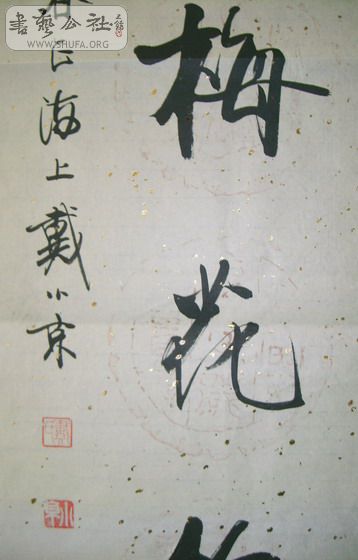 書藝公社
WWW.SHUFA.ORG
梅花
海上戴小京
小京